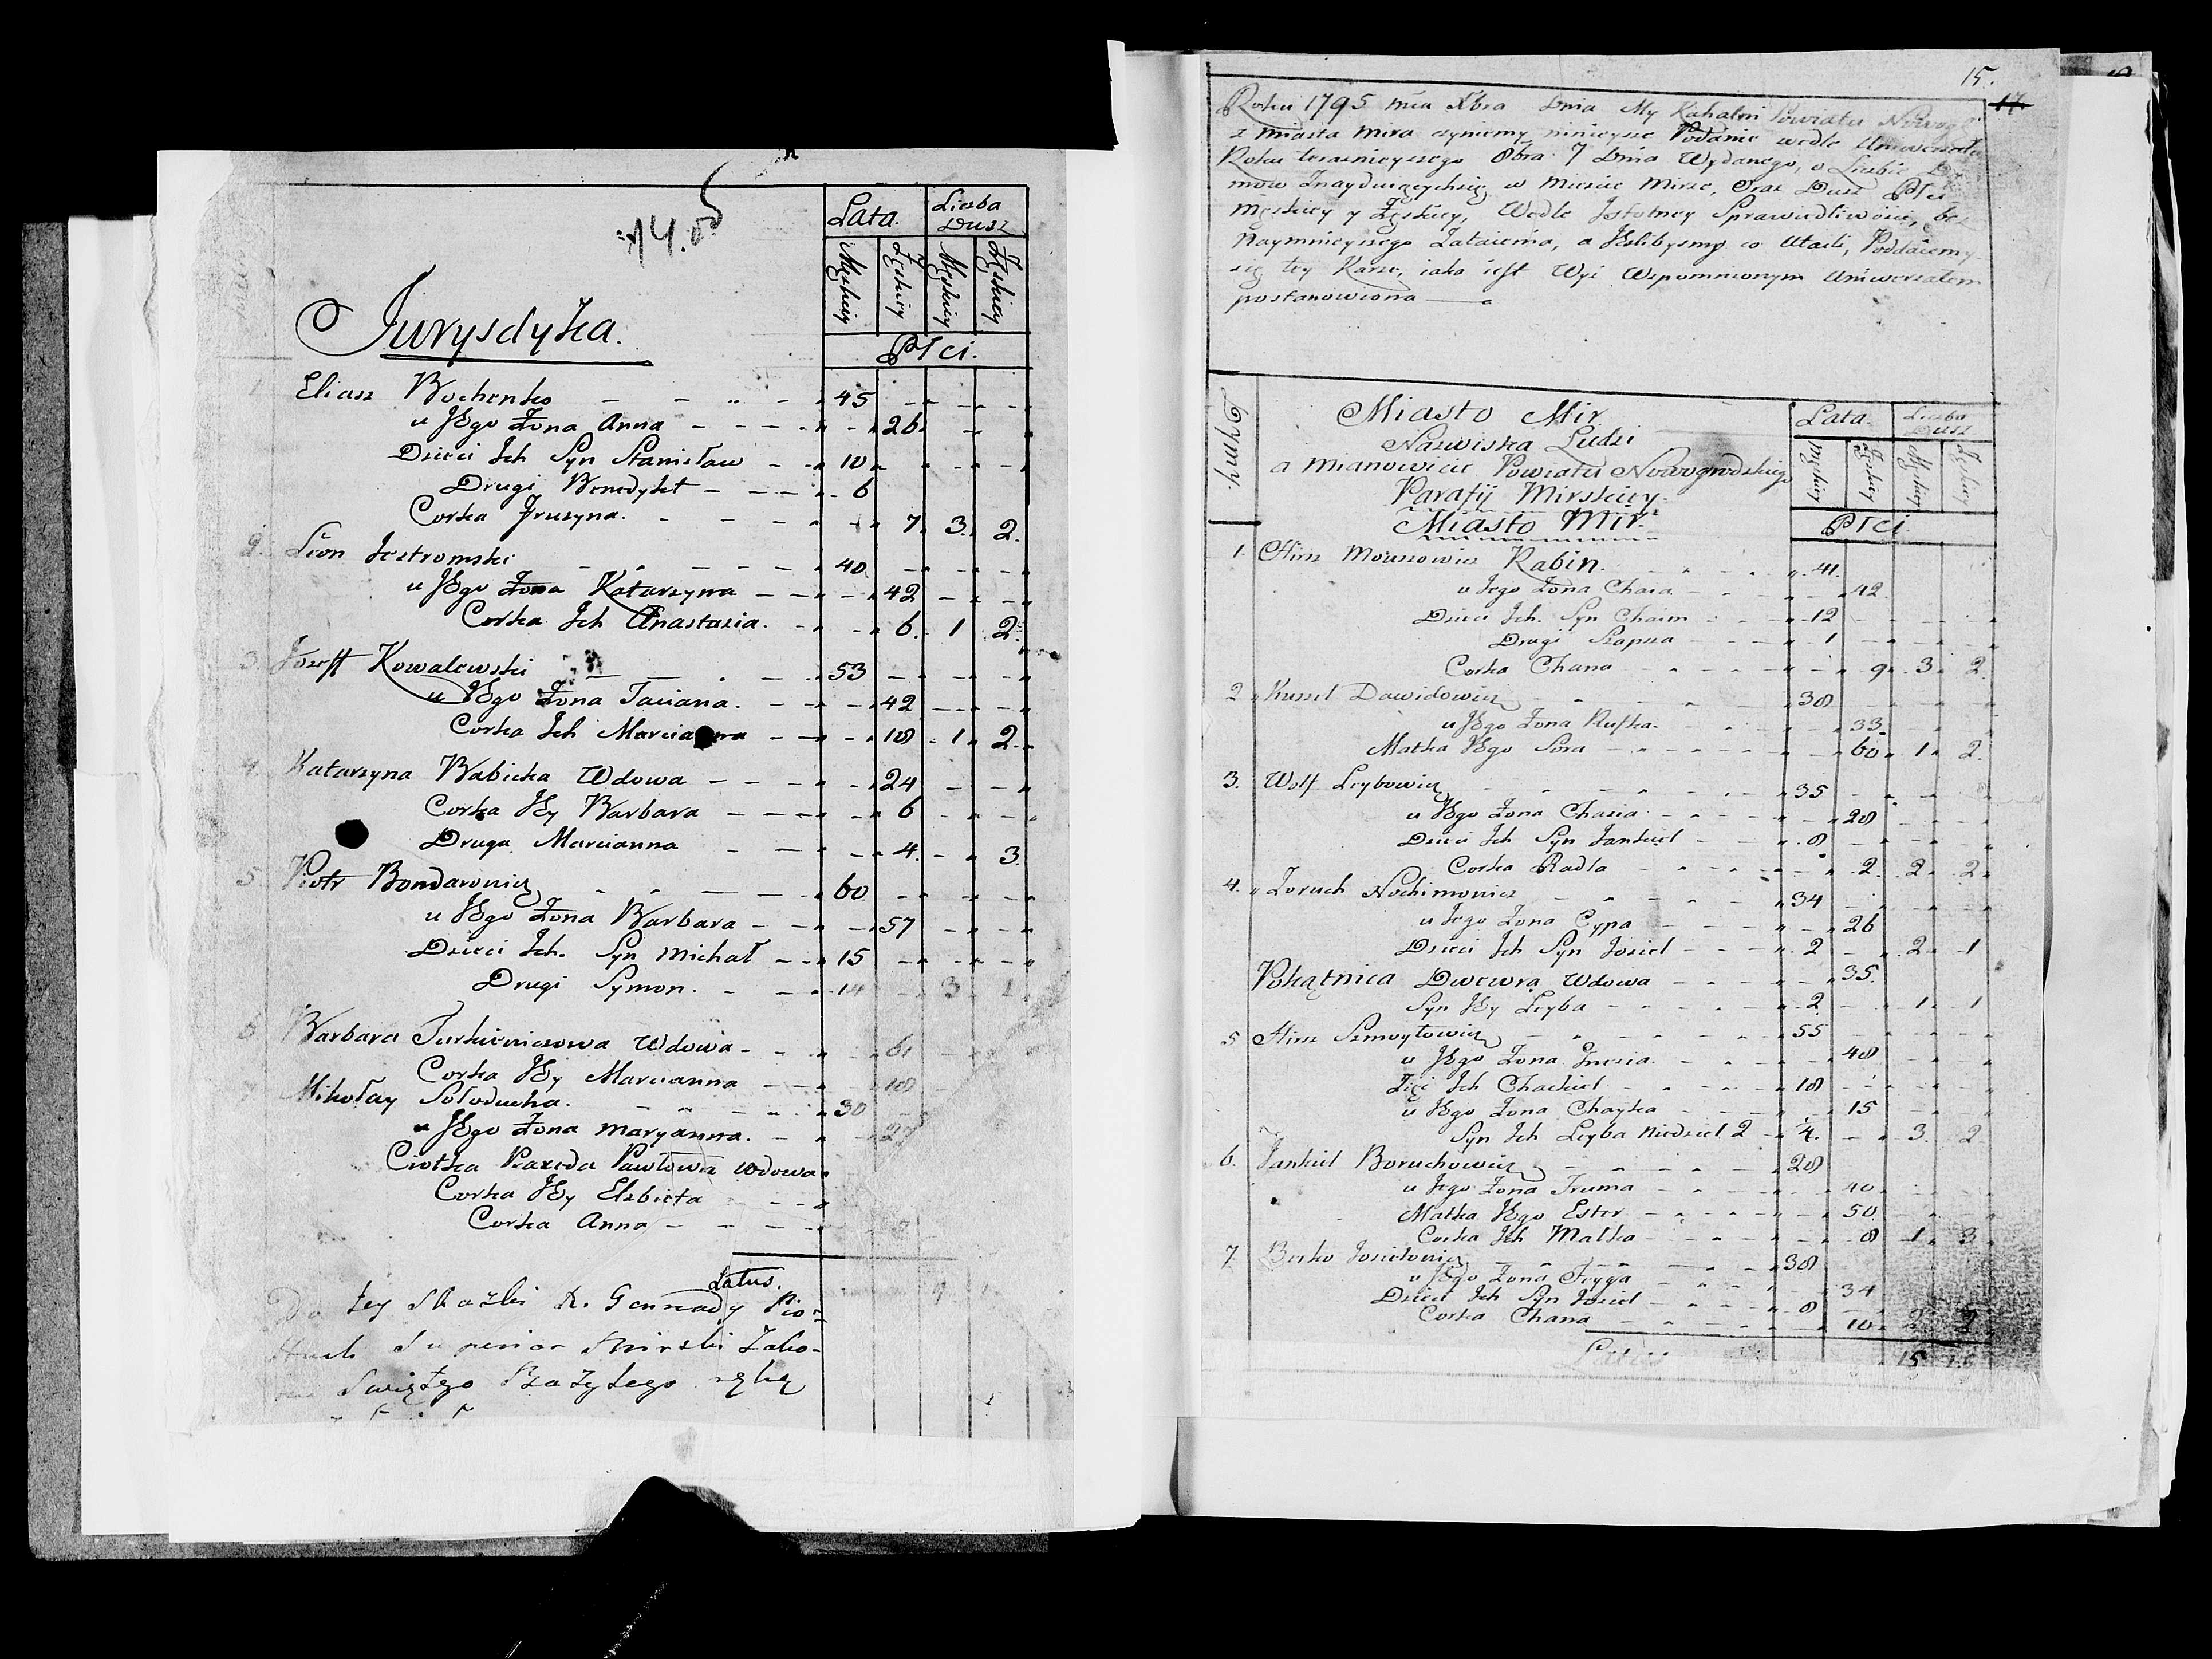 Lata. Liczba Dusz
Męskiey Żęskiey Męskiey Żęskiey
Jurysdyka.
Płci.
1. Eliasz Bochenko 45
u Jego Żona Anna 26
Dzieci Ich Syn Stanisław 10
Drugi Benedykt 6
Corka Jruzyna. 7 3 2
2. Leon Jestromski 40
u Jego Żona Katarzyna 42
Corka Ich Anastazia. 6 1 2
3. Jozeff Kowalewski 53
u Jego Żona Taciana. 42
Corka Ich Marcianna 18 1 2
4. Katarzyna Babicka Wdowa 24
Corka Jey Barbara 6
Druga Marcianna 4 3
5. Piotr Bondarowicz 60
u Jego Żona Barbara 57
Dzieci Ich. Syn Michał 15
Drugi Symon. 14 3 1
6 Barbara Wdowa 61
Corka Jey Marcianna 18
7 Mikołay Sołoducha. 30
u Jego Żona Maryanna. 27
Ciotka Pawłowa wdowa
Corka Jey Elzbieta
Corka Anna
Latus. 9
Do tey Skazki X. Gennady Pio-
Superior Mirski Zako-
Swiętego Bazylego ręką
15.
17.
Roku 1795 mca Xbra Dnia My Kahalni Powiatu
z Miasta Mira czyniemy ninieysze Podanie wedle Uniwersału
Roku teraznieyszego 8bra 7 Dnia Wydanego, o Liczbie
mow Znayduiących się w Miescie Mirze, Oraz Dusz Płci
Męskiey y Żęskiey, Wedle Jstotney Sprawiedliwości, bez
Naymnieyszego Zataienia, a Jeslibysmy co Utaili, Poddaiemy
się tey Karze, iaka iest Wyż Wspomnionym Uniwersałem
postanowiona
Dymy. Miasto Mir Lata. Liczba Dusz
Nazwiska Ludzi
a Mianowicie Powiatu Nowogrodzkiego
Parafij Mirskiey.
Miasto Mir.
Męskiey Żęskiey Męskiey Żęskiey
Płci
1. Hirsz Rabin. 41.
u Jego Żona Chaia 42
Dzieci Ich. Syn Chaim 12
Drugi Szapsza 1
Corka Chana 9 3 2
2 Kussel Dawidowicz 38
u Jego Żona Rufka. 33
Matka Jego Sora 60 1 2.
3. Wolf Leybowicz 35
u Jego Żona Chasia 28
Dzieci Ich Syn Jankiel 8
Corka Radla 2 2 2
4. Zoruch Nochimowicz 34
u Jego Żona Cypa 26
Dzieci Ich Syn Josiel 2 2 1
Pokątnica Dwewra Wdowa 35.
Syn Jey Leyba 2 1 1
5 Hirsz Szmoyłowicz 55
u Jego Żona Gnesia 48
Zięć Ich Chackiel 18
u Jego Żona Chayka 15
Syn Ich Leyba Niedziel 2 4. 3 2
6. Jankiel Boruchowicz 28
u Jego Żona Fruma 40
Matka Jego Ester 50
Corka Ich Malka 8 1 3
7. Berko Josielowicz 38
u Jego Żona Freyga 34
Dzieci Ich Syn Josiel 8
Corka Chana 10 2 2
Latus 15